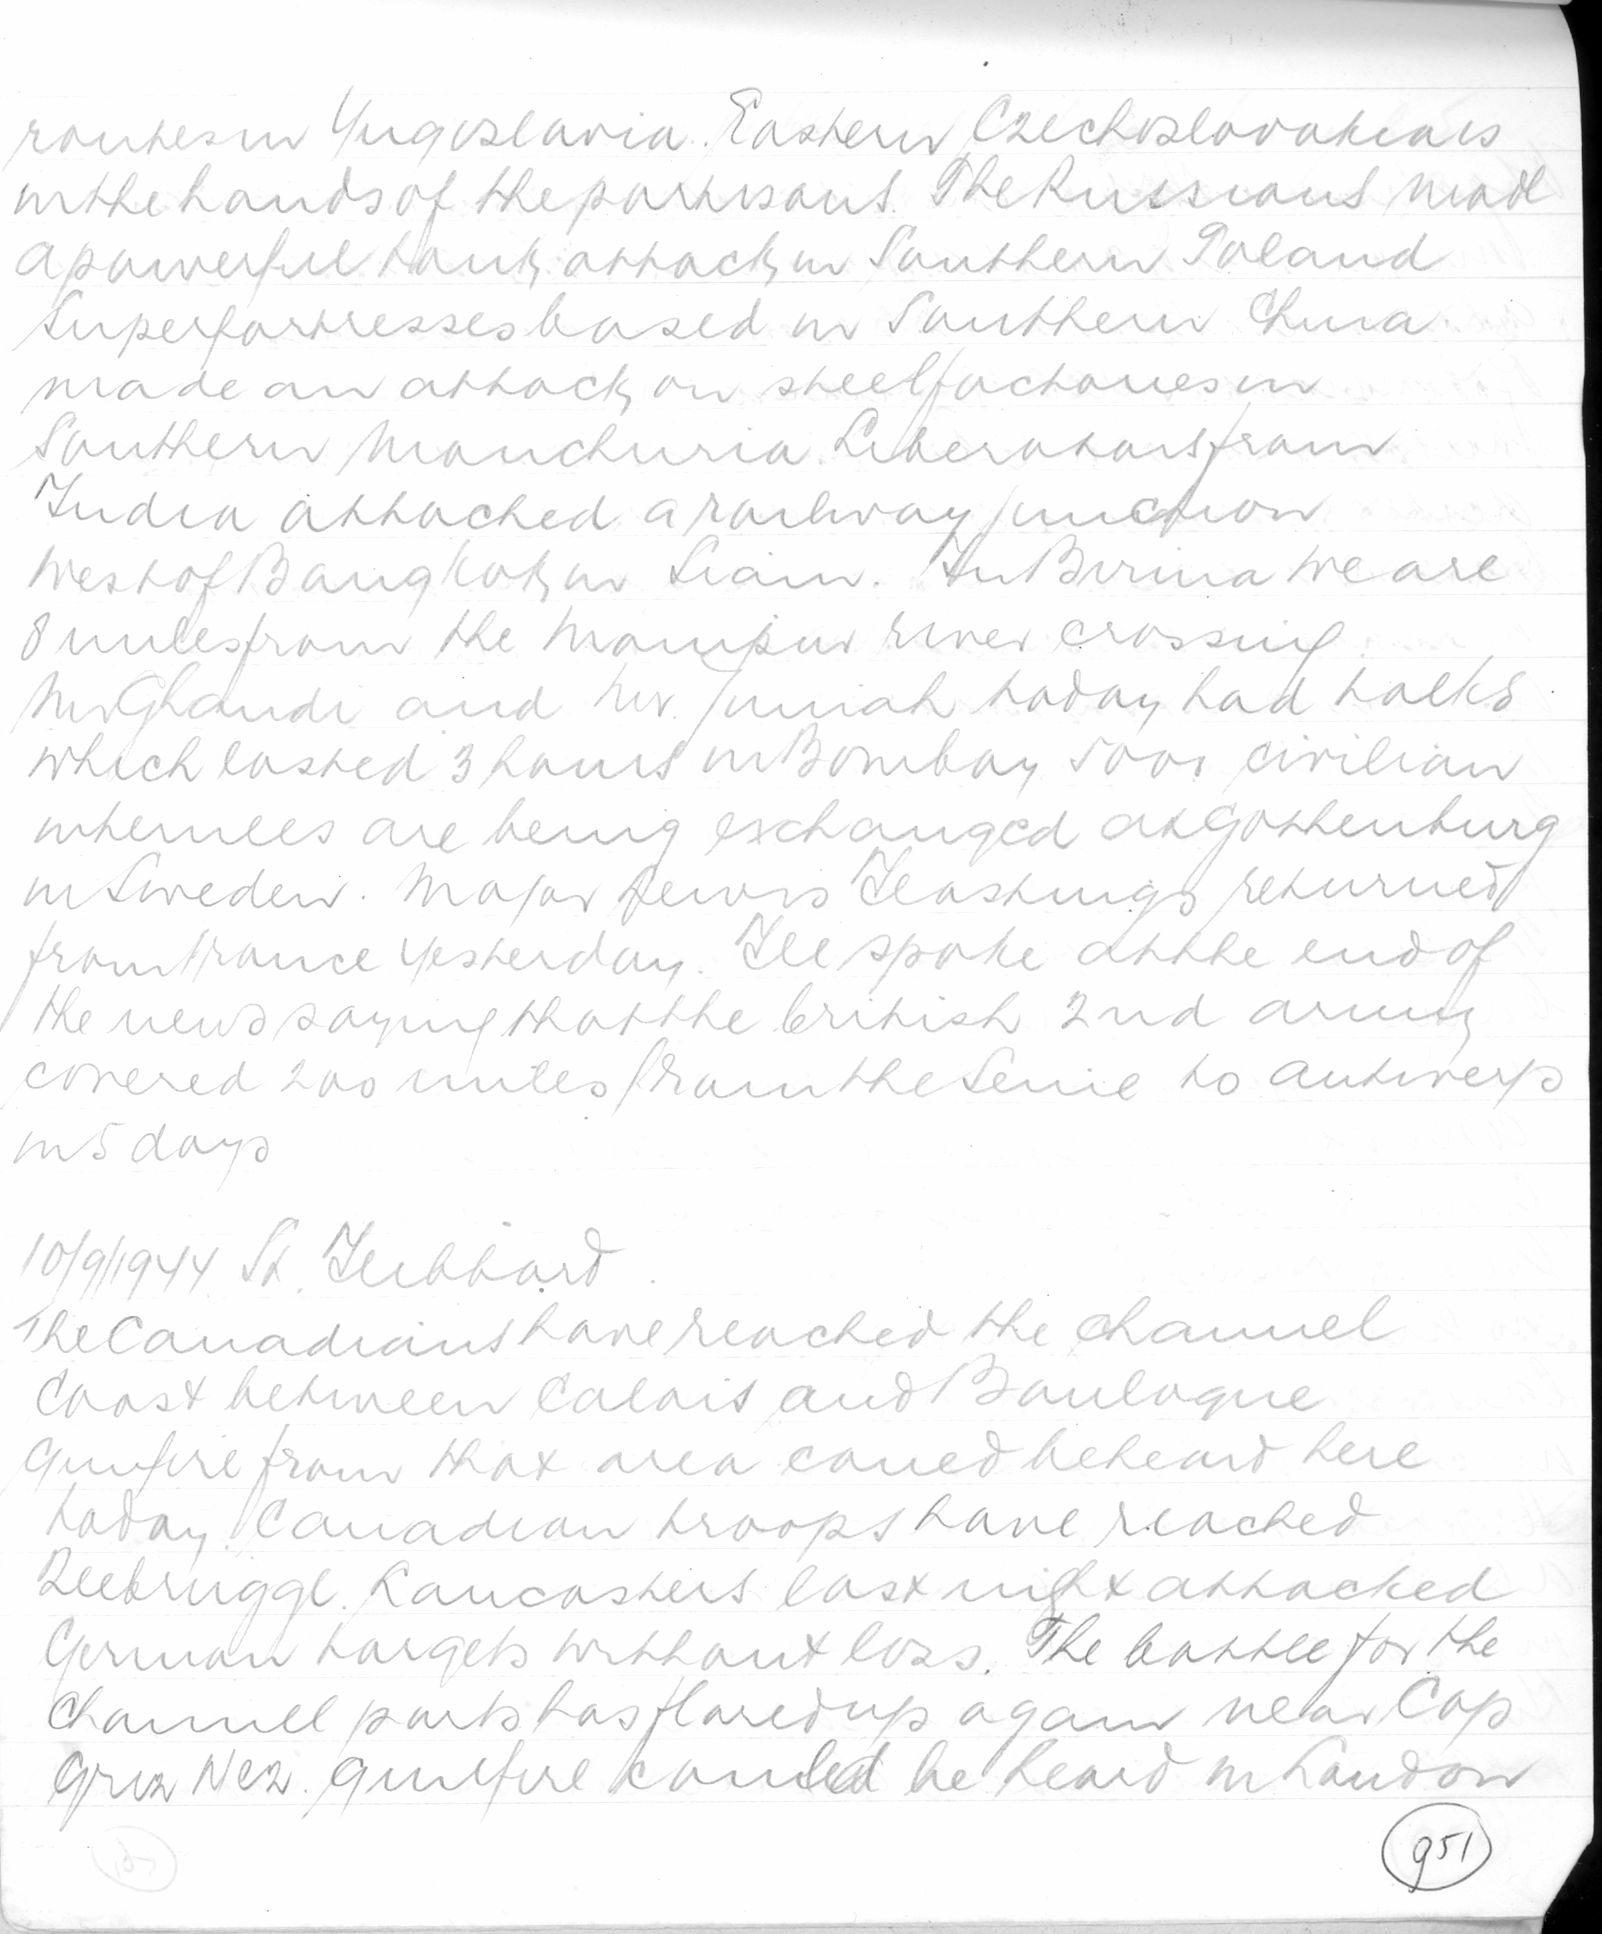 routes in Yugoslavia. Eastern Czechoslovakia is
in the hands of the partisans. The Russians made
a powerful tank attack in Southern Poland
Superfortresses based in Southern China
made an attack on steel factories in
Southern Manchuria. Liberators from
India attacked a railway junction
West of Bangkok in Siam. In Burma we are
8 miles from the Manipur river crossing.
Mr Ghandi and Mr. Jinnah today had talks
which lasted 3 hours in Bombay. 5000 civilian
internees are being exchanged at Gothenburg
in Sweden. Major Lewis Hastings returned
from France yesterday. He spoke at the end of
the news saying that the british 2nd army
covered 200 miles from the Seine to Antwerp
in 5 days

10/9/1944. St. Hubbard.
The Canadians have reached the channel
Coast between Calais and Boulogne
Gunfire from that area coued be heard here
today. Canadian troops have reached
Zeebrugge. Lancasters last night attacked
German targets without loss. The battle for the
Channel ports has flared up again near Cap
Griz Nez. gunfire could be heard in London
951